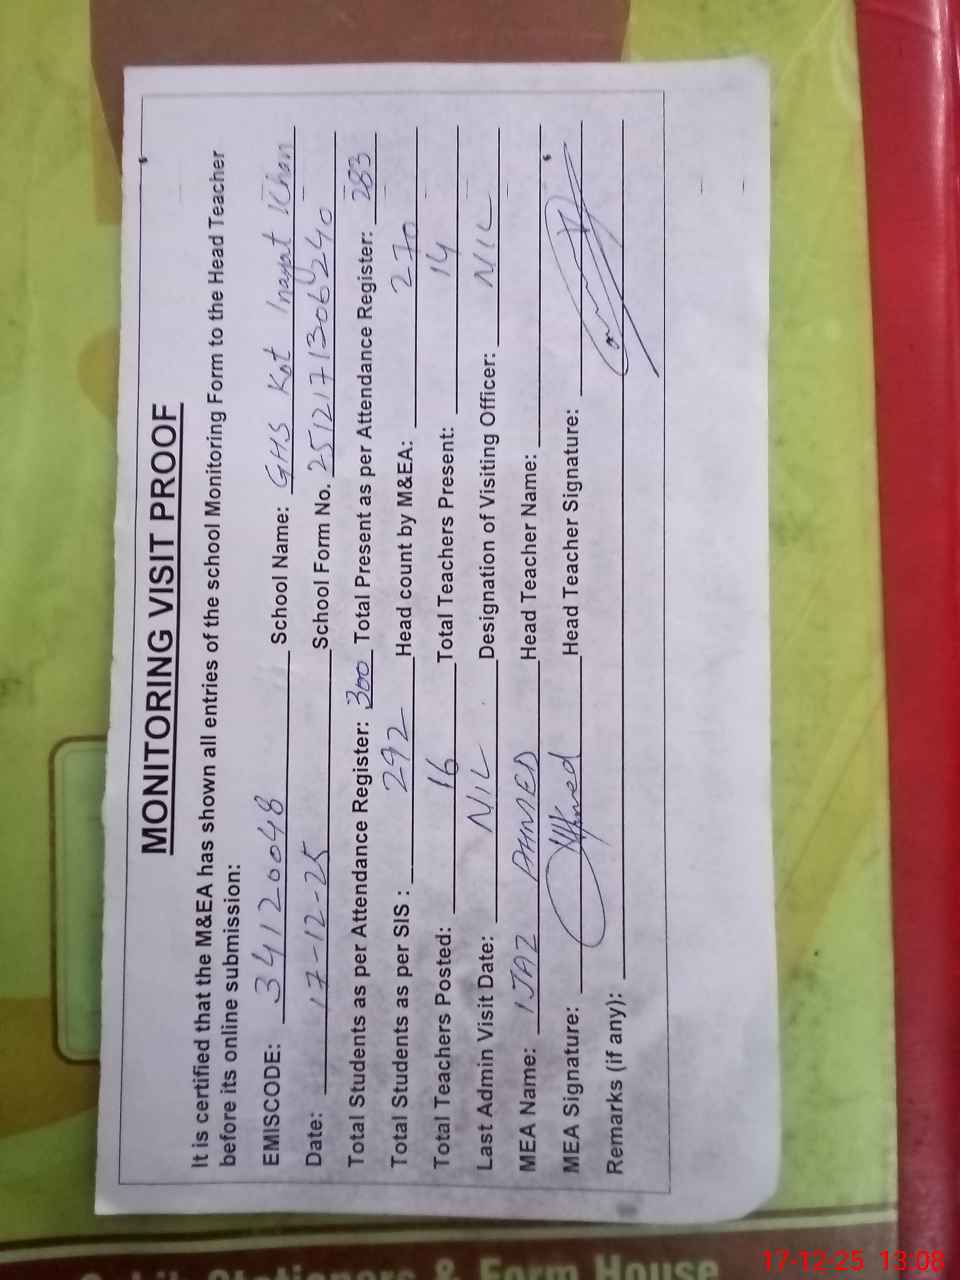 MONITORING VISIT PROOF
It is certified that the M&EA has shown all entries of the school Monitoring Form to the Head Teacher
before its online submission:
EMISCODE: 34120048 School Name: GHS Kot Inayat Khan
Date: 17-12-25 School Form No. 25121713064240
Total Students as per Attendance Register: 300 Total Present as per Attendance Register: 283
Total Students as per SIS : 292 Head count by M&EA: 270
Total Teachers Posted: 16 Total Teachers Present: 14
Last Admin Visit Date: NIL Designation of Visiting Officer: NIL
MEA Name: IJAZ AHMED Head Teacher Name:
MEA Signature: Head Teacher Signature:
Remarks (if any):
Stationers & Form House
17-12-25 13:08